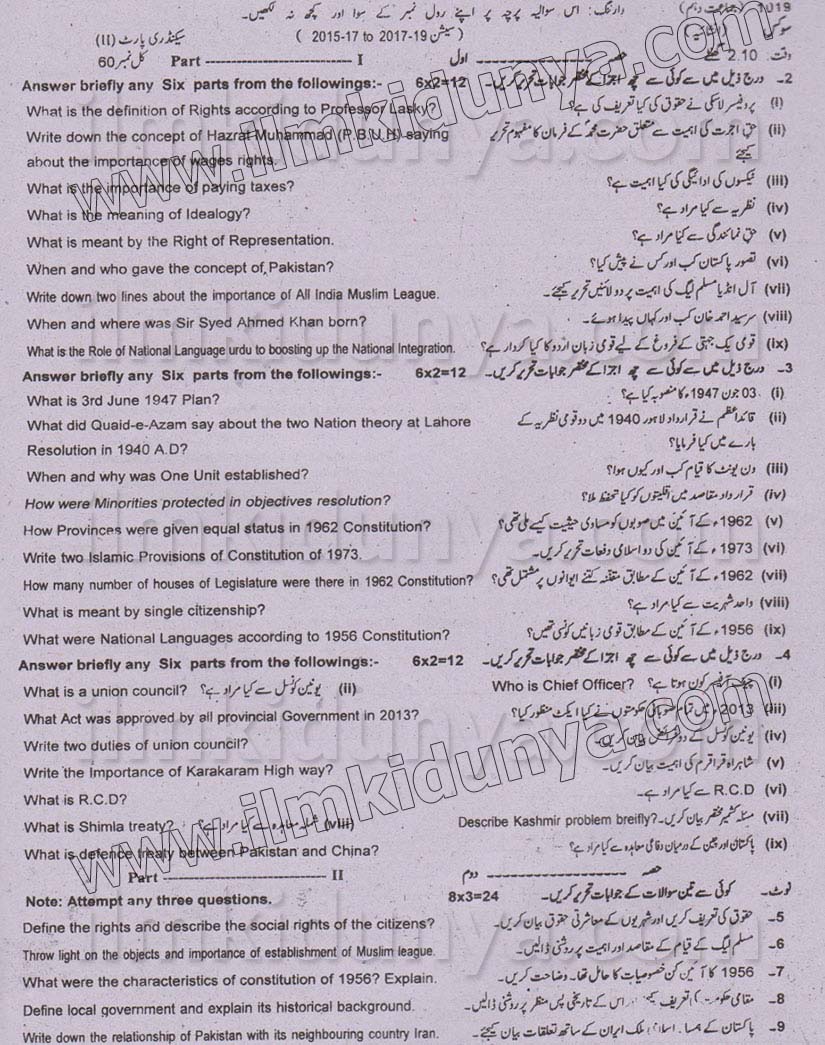 وارننگ: اس سوالیہ پرچہ پر اپنے رول نمبر کے سوا اور کچھ نہ لکھیں۔ 1019
( 2015-17 to 2017-19 سیشن ) سیکنڈری پارٹ (II)
وقت: 2.10 گھنٹے حصہ ---------- اول Part ---------- I کل نمبر 60
Answer briefly any Six parts from the followings:- 6x2=12 2۔ درج ذیل میں سے کوئی سے چھ اجزا کے مختصر جوابات تحریر کریں۔
What is the definition of Rights according to Professor Lasky? (i) پروفیسر لاسکی نے حقوق کی کیا تعریف کی ہے؟
Write down the concept of Hazrat Muhammad (P.B.U.H) saying (ii) حق اجرت کی اہمیت سے متعلق حضرت محمدؐ کے فرمان کا مفہوم تحریر
about the importance of wages rights. کیجئے
What is the importance of paying taxes? (iii) ٹیکسوں کی ادائیگی کی کیا اہمیت ہے؟
What is the meaning of Idealogy? (iv) نظریہ سے کیا مراد ہے؟
What is meant by the Right of Representation. (v) حق نمائندگی سے کیا مراد ہے؟
When and who gave the concept of Pakistan? (vi) تصور پاکستان کب اور کس نے پیش کیا؟
Write down two lines about the importance of All India Muslim League. (vii) آل انڈیا مسلم لیگ کی اہمیت پر دو لائنیں تحریر کیجئے۔
When and where was Sir Syed Ahmed Khan born? (viii) سرسید احمد خان کب اور کہاں پیدا ہوئے۔
What is the Role of National Language urdu to boosting up the National Integration. (ix) قومی یک جہتی کے فروغ کے لیے قومی زبان اردو کا کیا کردار ہے؟
Answer briefly any Six parts from the followings:- 6x2=12 3۔ درج ذیل میں سے کوئی سے چھ اجزا کے مختصر جوابات تحریر کریں۔
What is 3rd June 1947 Plan? (i) 03 جون 1947 کا منصوبہ کیا ہے؟
What did Quaid-e-Azam say about the two Nation theory at Lahore (ii) قائداعظم نے قرارداد لاہور 1940 میں دو قومی نظریہ کے
Resolution in 1940 A.D? بارے میں کیا فرمایا؟
When and why was One Unit established? (iii) ون یونٹ کا قیام کب اور کیوں ہوا؟
How were Minorities protected in objectives resolution? (iv) قرارداد مقاصد میں اقلیتوں کو کیا تحفظ ملا؟
How Provinces were given equal status in 1962 Constitution? (v) 1962ء کے آئین میں صوبوں کو مساوی حیثیت کیسے ملی تھی؟
Write two Islamic Provisions of Constitution of 1973. (vi) 1973ء کے آئین کی دو اسلامی دفعات تحریر کریں۔
How many number of houses of Legislature were there in 1962 Constitution? (vii) 1962ء کے آئین کے مطابق مقننہ کتنے ایوانوں پر مشتمل تھی؟
What is meant by single citizenship? (viii) واحد شہریت سے کیا مراد ہے؟
What were National Languages according to 1956 Constitution? (ix) 1956ء کے آئین کے مطابق قومی زبانیں کونسی تھیں؟
Answer briefly any Six parts from the followings:- 6x2=12 4۔ درج ذیل میں سے کوئی سے چھ اجزا کے مختصر جوابات تحریر کریں۔
What is a union council? یونین کونسل سے کیا مراد ہے؟ (ii) Who is Chief Officer? چیف آفیسر کون ہوتا ہے؟ (i)
What Act was approved by all provincial Government in 2013? (iii) 2013ء میں تمام صوبائی حکومتوں نے کیا ایکٹ منظور کیا؟
Write two duties of union council? (iv) یونین کونسل کے دو فرائض بیان کریں۔
Write the Importance of Karakaram High way? (v) شاہراہ قراقرم کی اہمیت بیان کریں۔
What is R.C.D? (vi) R.C.D سے کیا مراد ہے۔
What is Shimla treaty? شملہ معاہدہ سے کیا مراد ہے؟ (viii) Describe Kashmir problem breifly? مسئلہ کشمیر مختصر بیان کریں۔ (vii)
What is defence treaty between Pakistan and China? (ix) پاکستان اور چین کے درمیان دفاعی معاہدہ سے کیا مراد ہے؟
Part ---------- II حصہ ---------- دوم
Note: Attempt any three questions. 8x3=24 نوٹ۔ کوئی سے تین سوالات کے جوابات تحریر کریں۔
Define the rights and describe the social rights of the citizens? 5۔ حقوق کی تعریف کریں اور شہریوں کے معاشرتی حقوق بیان کریں۔
Throw light on the objects and importance of establishment of Muslim league. 6۔ مسلم لیگ کے قیام کے مقاصد اور اہمیت پر روشنی ڈالیں۔
What were the characteristics of constitution of 1956? Explain. 7۔ 1956 کا آئین کن خصوصیات کا حامل تھا۔ وضاحت کریں۔
Define local government and explain its historical background. 8۔ مقامی حکومت کی تعریف کیجئے اس کے تاریخی پس منظر پر روشنی ڈالیں۔
Write down the relationship of Pakistan with its neighbouring country Iran. 9۔ پاکستان کے ہمسایہ اسلامی ملک ایران کے ساتھ تعلقات بیان کیجئے۔
www.ilmkidunya.com
www.ilmkidunya.com
ilmkidunya.com
ilmkidunya.com
ilmkidunya.com
ilmkidunya.com
ilmkidunya.com